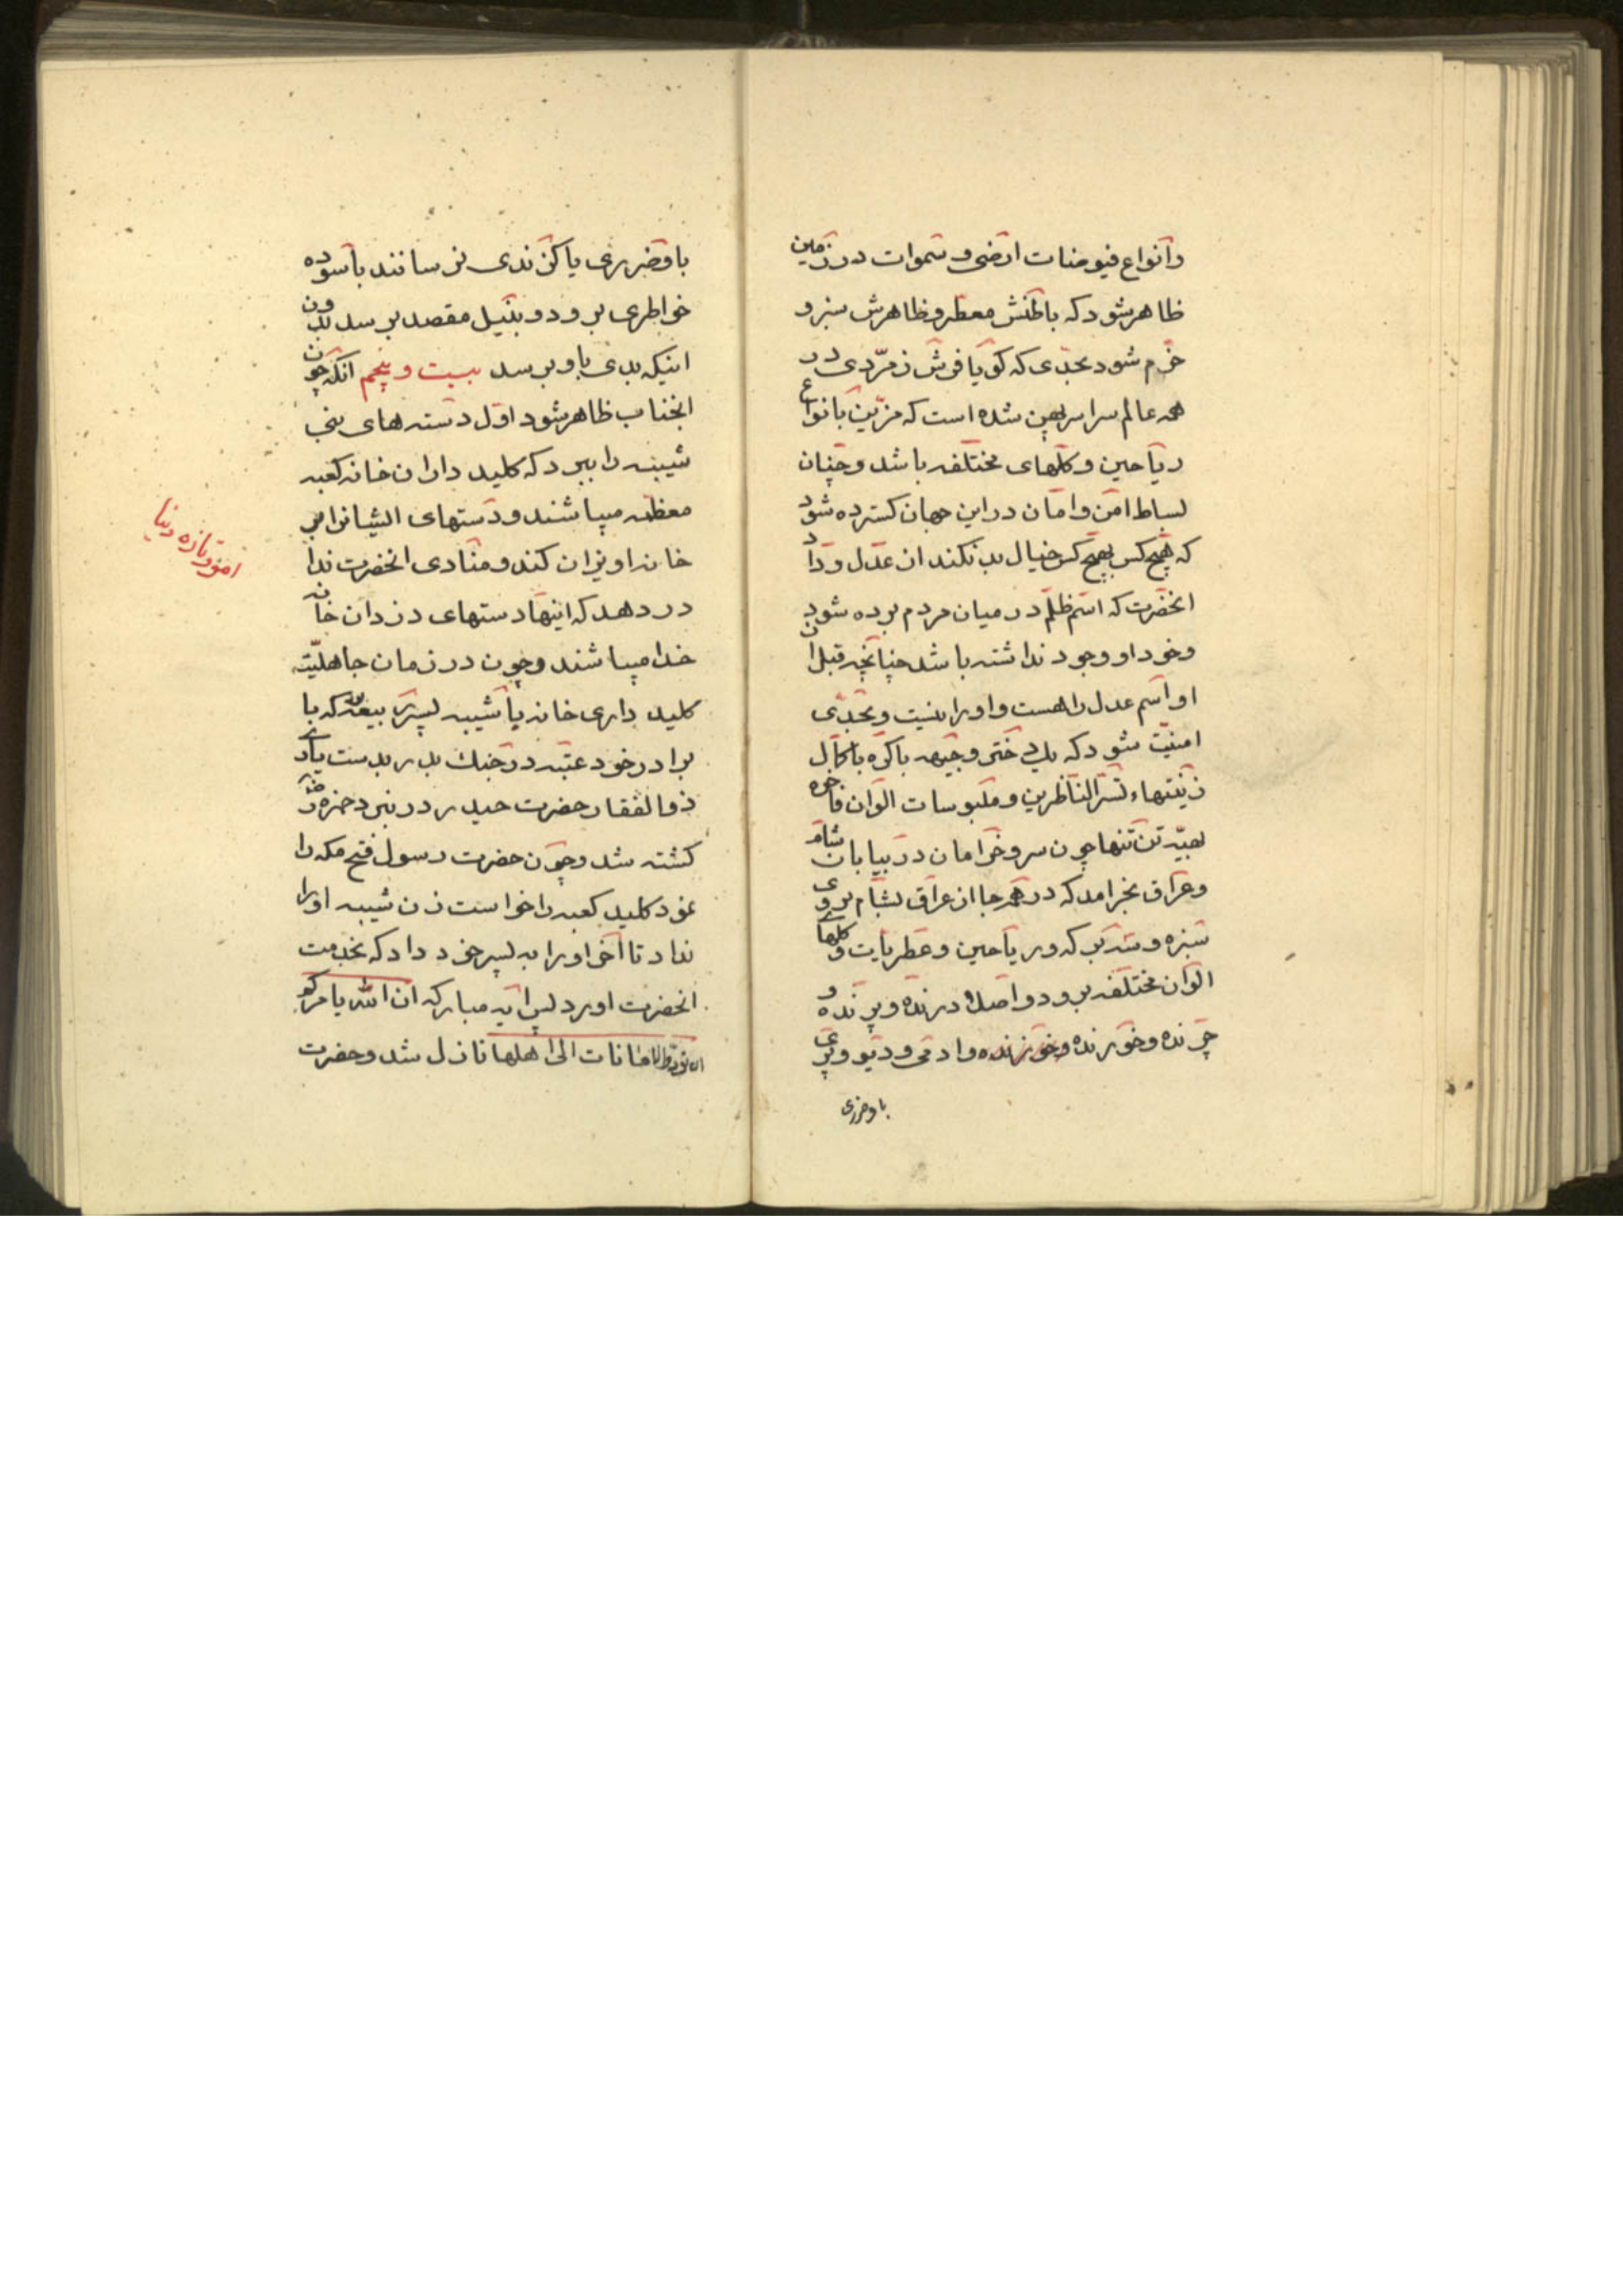 وانواع فیوضات ارضی و سموات در زمین
ظاهر شود که باطنش معطر و ظاهرش سبز و
خرّم شود بحدی که کویا فرش زمرّدی در
همه عالم سراسر پهن شده است که مزیّن بانواع
ریاحین و کلهای مختلفه باشد و چنان
بساط امن و امان در این جهان کسترده شود
که هیچ کس بهیچ کس خیال بد نکند از عدل و داد
انحضرت که اسم ظلم در میان مردم برده شود
و خود او وجود نداشته باشد چنانچه قبل از
او اسم عدل را هست و اورا نیست و بحدی
امنیّت شود که یك دختر وجیهه باکره با کمال
زینتها تسرّ الناظرین و ملبوسات الوان فاخره
تن تنها چون سرو خرامان در بیابان شام
و عراق بخرامد که در هر جا از عراق بشام بر روی
سبزه و که در ریاحین و عطریات و کلهای
الوان مختلفه برود و اصلا درنده و پرنده و
چرنده و خورنده و خزنده و ادمی و دیو و پری
باو ضرری
باو ضرری یا کزندی نرسانند باسوده
خواطری برود و بنیل مقصد برسد بدون
اینکه بدی باو برسد بیست و پنجم انکه چون
انجناب ظاهر شود اول دسته های بنی
شیبه را ببرد که کلید داران خانه کعبه
معظمه میباشند و دستهای ایشانرا بر
خانه اویزان کند و منادی انحضرت ندا
در دهد که اینها دستهای دزدان خانه
خدا میباشند و چون در زمان جاهلیّت
کلید داری خانه با شیبه پسر که با
برادر خود عتبه در جنك بدر بدست یاری
ذوالفقار حضرت حیدر در نبرد حمزه
کشته شد و چون حضرت رسول فتح مکه را
نمود کلید کعبه را خواست زن شیبه اورا
نداد تا آخر اورا به پسر خود داد که بخدمت
انحضرت اورد پس ایه مبارکه ان الله یامرکم
ان تؤدوا الامانات الی اهلها نازل شد و حضرت